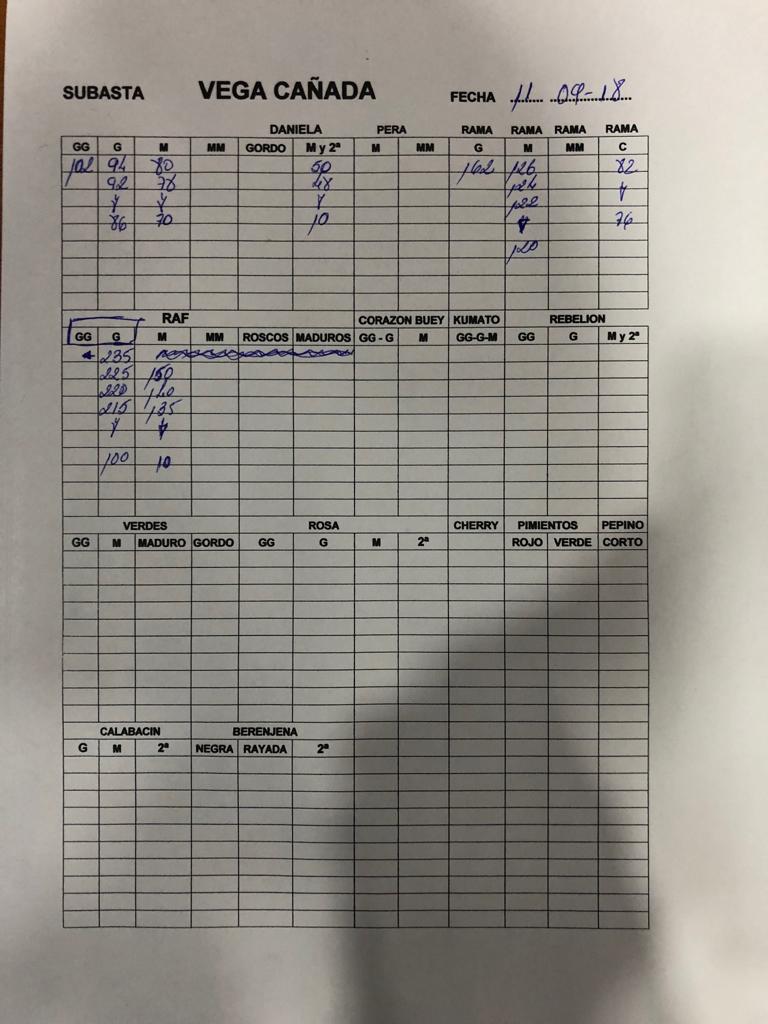 SUBASTA VEGA CAÑADA FECHA 11 09-18
DANIELA PERA RAMA RAMA RAMA RAMA
GG G M MM GORDO M y 2ª M MM G M MM C
102 94 80 50 162 126 82
92 78 48 124
122
86 70 10 76
120
RAF CORAZON BUEY KUMATO REBELION
GG G M MM ROSCOS MADUROS GG - G M GG-G-M GG G M y 2ª
235
225 150
220 140
215 135
100 10
VERDES ROSA CHERRY PIMIENTOS PEPINO
GG M MADURO GORDO GG G M 2ª ROJO VERDE CORTO
CALABACIN BERENJENA
G M 2ª NEGRA RAYADA 2ª